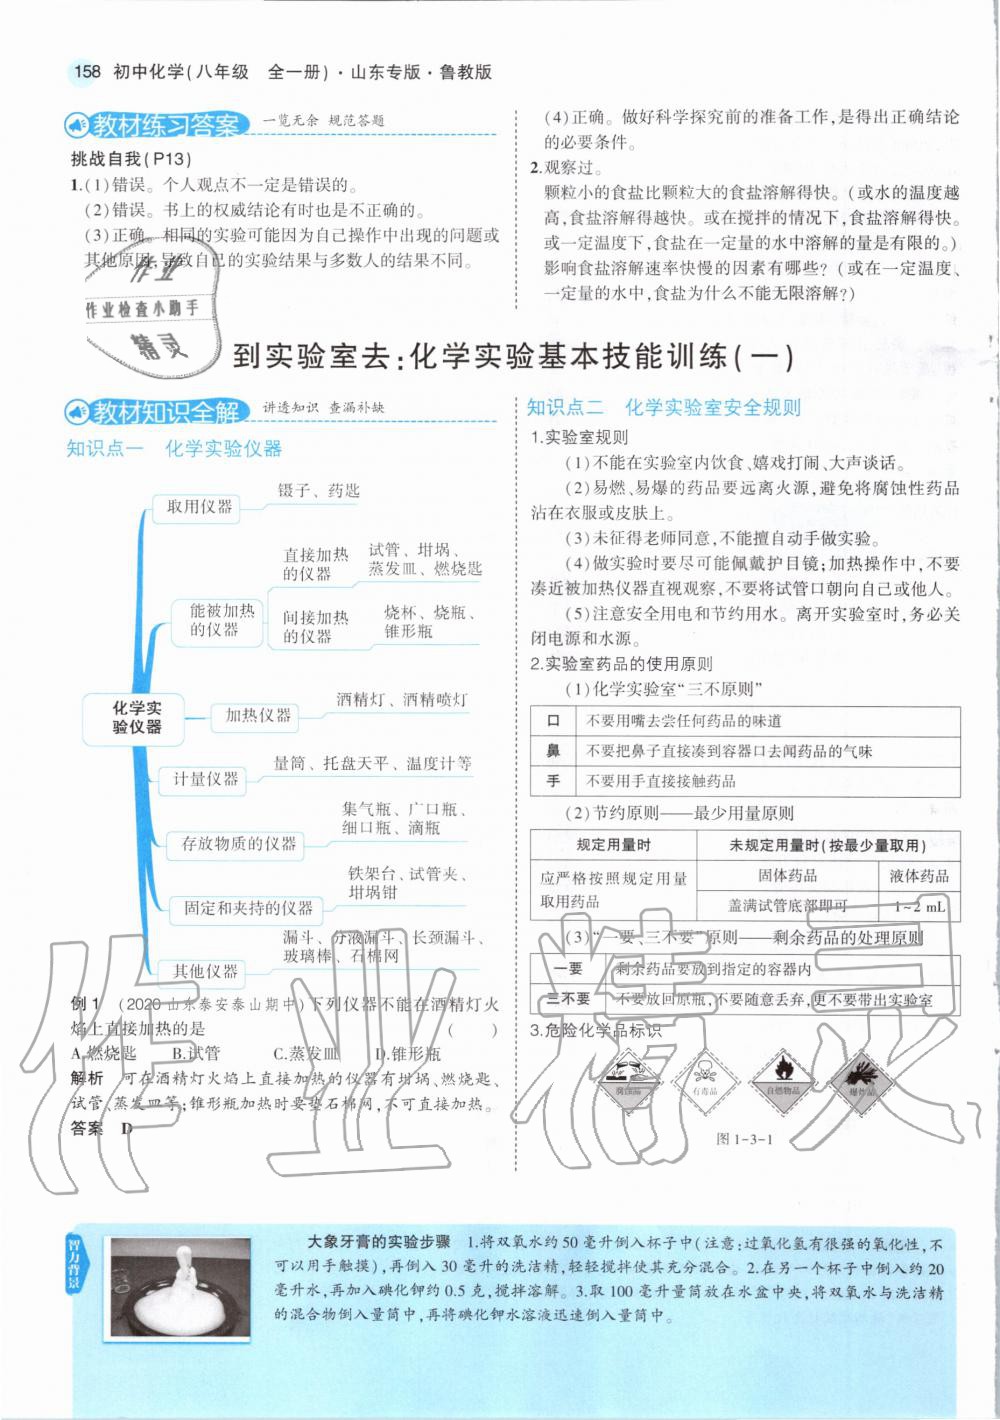 158 初中化学(八年级 全一册)·山东专版·鲁教版
教材练习答案 一览无余 规范答题
挑战自我(P13)
1.(1)错误。个人观点不一定是错误的。
(2)错误。书上的权威结论有时也是不正确的。
(3)正确。相同的实验可能因为自己操作中出现的问题或
其他原因,导致自己的实验结果与多数人的结果不同。
(4)正确。做好科学探究前的准备工作,是得出正确结论
的必要条件。
2.观察过。
颗粒小的食盐比颗粒大的食盐溶解得快。(或水的温度越
高,食盐溶解得越快。或在搅拌的情况下,食盐溶解得快。
或一定温度下,食盐在一定量的水中溶解的量是有限的。)
影响食盐溶解速率快慢的因素有哪些?(或在一定温度、
一定量的水中,食盐为什么不能无限溶解?)
作业
作业检查小助手
精灵
到实验室去:化学实验基本技能训练(一)
教材知识全解 讲透知识 查漏补缺
知识点一 化学实验仪器
化学实
验仪器
取用仪器
镊子、药匙
能被加热
的仪器
直接加热
的仪器
试管、坩埚、
蒸发皿、燃烧匙
间接加热
的仪器
烧杯、烧瓶、
锥形瓶
加热仪器
酒精灯、酒精喷灯
计量仪器
量筒、托盘天平、温度计等
存放物质的仪器
集气瓶、广口瓶、
细口瓶、滴瓶
固定和夹持的仪器
铁架台、试管夹、
坩埚钳
其他仪器
漏斗、分液漏斗、长颈漏斗、
玻璃棒、石棉网
例1 (2020山东泰安泰山期中)下列仪器不能在酒精灯火
焰上直接加热的是 ( )
A.燃烧匙 B.试管 C.蒸发皿 D.锥形瓶
解析 可在酒精灯火焰上直接加热的仪器有坩埚、燃烧匙、
试管、蒸发皿等;锥形瓶加热时要垫石棉网,不可直接加热。
答案 D
知识点二 化学实验室安全规则
1.实验室规则
(1)不能在实验室内饮食、嬉戏打闹、大声谈话。
(2)易燃、易爆的药品要远离火源,避免将腐蚀性药品
沾在衣服或皮肤上。
(3)未征得老师同意,不能擅自动手做实验。
(4)做实验时要尽可能佩戴护目镜;加热操作中,不要
凑近被加热仪器直视观察,不要将试管口朝向自己或他人。
(5)注意安全用电和节约用水。离开实验室时,务必关
闭电源和水源。
2.实验室药品的使用原则
(1)化学实验室“三不原则”
口 不要用嘴去尝任何药品的味道
鼻 不要把鼻子直接凑到容器口去闻药品的气味
手 不要用手直接接触药品
(2)节约原则——最少用量原则
规定用量时 未规定用量时(按最少量取用)
应严格按照规定用量
取用药品
固体药品 液体药品
盖满试管底部即可 1~2 mL
(3)“一要、三不要”原则——剩余药品的处理原则
一要 剩余药品要放到指定的容器内
三不要 不要放回原瓶,不要随意丢弃,更不要带出实验室
3.危险化学品标识
腐蚀品 有毒品 自燃物品 爆炸品
图1-3-1
作业精灵
智力背景
大象牙膏的实验步骤 1.将双氧水约50毫升倒入杯子中(注意:过氧化氢有很强的氧化性,不
可以用手触摸),再倒入30毫升的洗洁精,轻轻搅拌使其充分混合。2.在另一个杯子中倒入约20
毫升水,再加入碘化钾约0.5克,搅拌溶解。3.取100毫升量筒放在水盆中央,将双氧水与洗洁精
的混合物倒入量筒中,再将碘化钾水溶液迅速倒入量筒中。